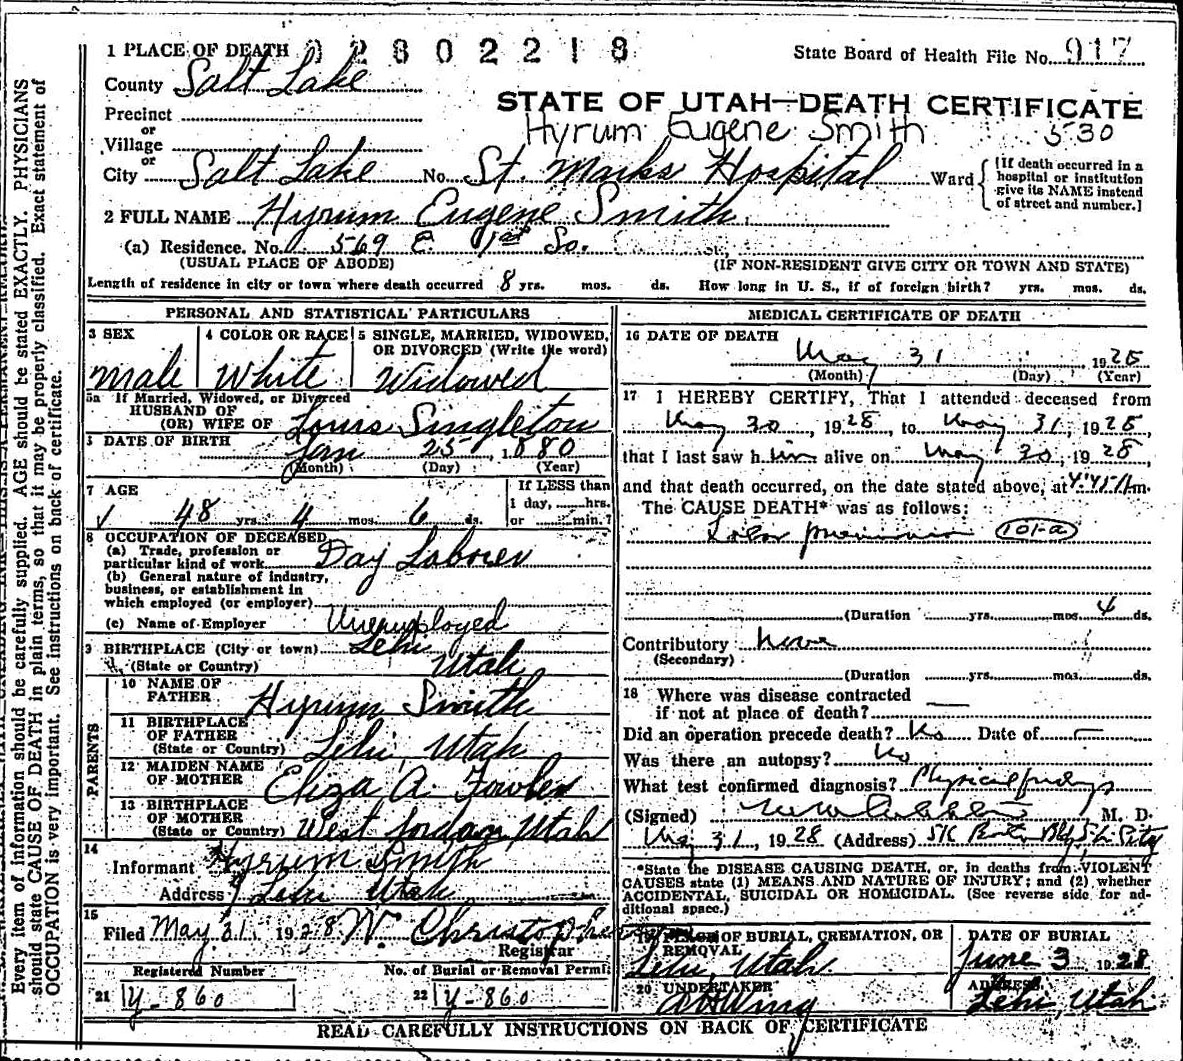 1 PLACE OF DEATH 02802218
State Board of Health File No. 917
County Salt Lake
STATE OF UTAH—DEATH CERTIFICATE
Precinct
Hyrum Eugene Smith 530
or
Village
or
City Salt Lake No. St. Marks Hospital Ward
[If death occurred in a hospital or institution give its NAME instead of street and number.]
2 FULL NAME Hyrum Eugene Smith
(a) Residence. No. 569 E. 1st So.
(USUAL PLACE OF ABODE) (IF NON-RESIDENT GIVE CITY OR TOWN AND STATE)
Length of residence in city or town where death occurred 8 yrs. mos. ds. How long in U. S., if of foreign birth? yrs. mos. ds.
PERSONAL AND STATISTICAL PARTICULARS
3 SEX
Male
4 COLOR OR RACE
White
5 SINGLE, MARRIED, WIDOWED, OR DIVORCED (Write the word)
Widowed
5a If Married, Widowed, or Divorced
HUSBAND OF
(OR) WIFE OF Louis Singleton
DATE OF BIRTH Jan 25, 1880
(Month) (Day) (Year)
7 AGE
48 yrs. 4 mos. 6 ds.
If LESS than
1 day, hrs.
or min.?
8 OCCUPATION OF DECEASED
(a) Trade, profession or
particular kind of work Day Laborer
(b) General nature of industry,
business, or establishment in
which employed (or employer)
(c) Name of Employer Unemployed
9 BIRTHPLACE (City or town) Lehi
(State or Country) Utah
PARENTS
10 NAME OF
FATHER Hyrum Smith
11 BIRTHPLACE
OF FATHER
(State or Country) Lehi, Utah
12 MAIDEN NAME
OF MOTHER Eliza A. Fowler
13 BIRTHPLACE
OF MOTHER
(State or Country) West Jordan, Utah
14
Informant Hyrum Smith
Address Lehi Utah
15
Filed May 31, 1928 W. Christopherson
Registrar
Registered Number No. of Burial or Removal Permit
21 Y-860 22 Y-860
MEDICAL CERTIFICATE OF DEATH
16 DATE OF DEATH
May 31 1928
(Month) (Day) (Year)
17 I HEREBY CERTIFY, That I attended deceased from
May 30, 1928, to May 31, 1928,
that I last saw him alive on May 30, 1928,
and that death occurred, on the date stated above, at 4:45 A m.
The CAUSE DEATH* was as follows:
Lobar pneumonia 101-a
(Duration yrs. mos. 4 ds.
Contributory None
(Secondary)
(Duration yrs. mos. ds.
18 Where was disease contracted
if not at place of death? —
Did an operation precede death? No Date of —
Was there an autopsy? No
What test confirmed diagnosis? Physical findings
(Signed) M. D.
May 31, 1928 (Address)
*State the DISEASE CAUSING DEATH, or, in deaths from VIOLENT
CAUSES state (1) MEANS AND NATURE OF INJURY; and (2) whether
ACCIDENTAL, SUICIDAL OR HOMICIDAL. (See reverse side for ad-
ditional space.)
19 PLACE OF BURIAL, CREMATION, OR
REMOVAL
Lehi, Utah.
DATE OF BURIAL
June 3 1928
20 UNDERTAKER
A H Wing
ADDRESS
Lehi, Utah.
READ CAREFULLY INSTRUCTIONS ON BACK OF CERTIFICATE
Every item of information should be carefully supplied. AGE should be stated EXACTLY. PHYSICIANS
should state CAUSE OF DEATH in plain terms, so that it may be properly classified. Exact statement of
OCCUPATION is very important. See instructions on back of certificate.